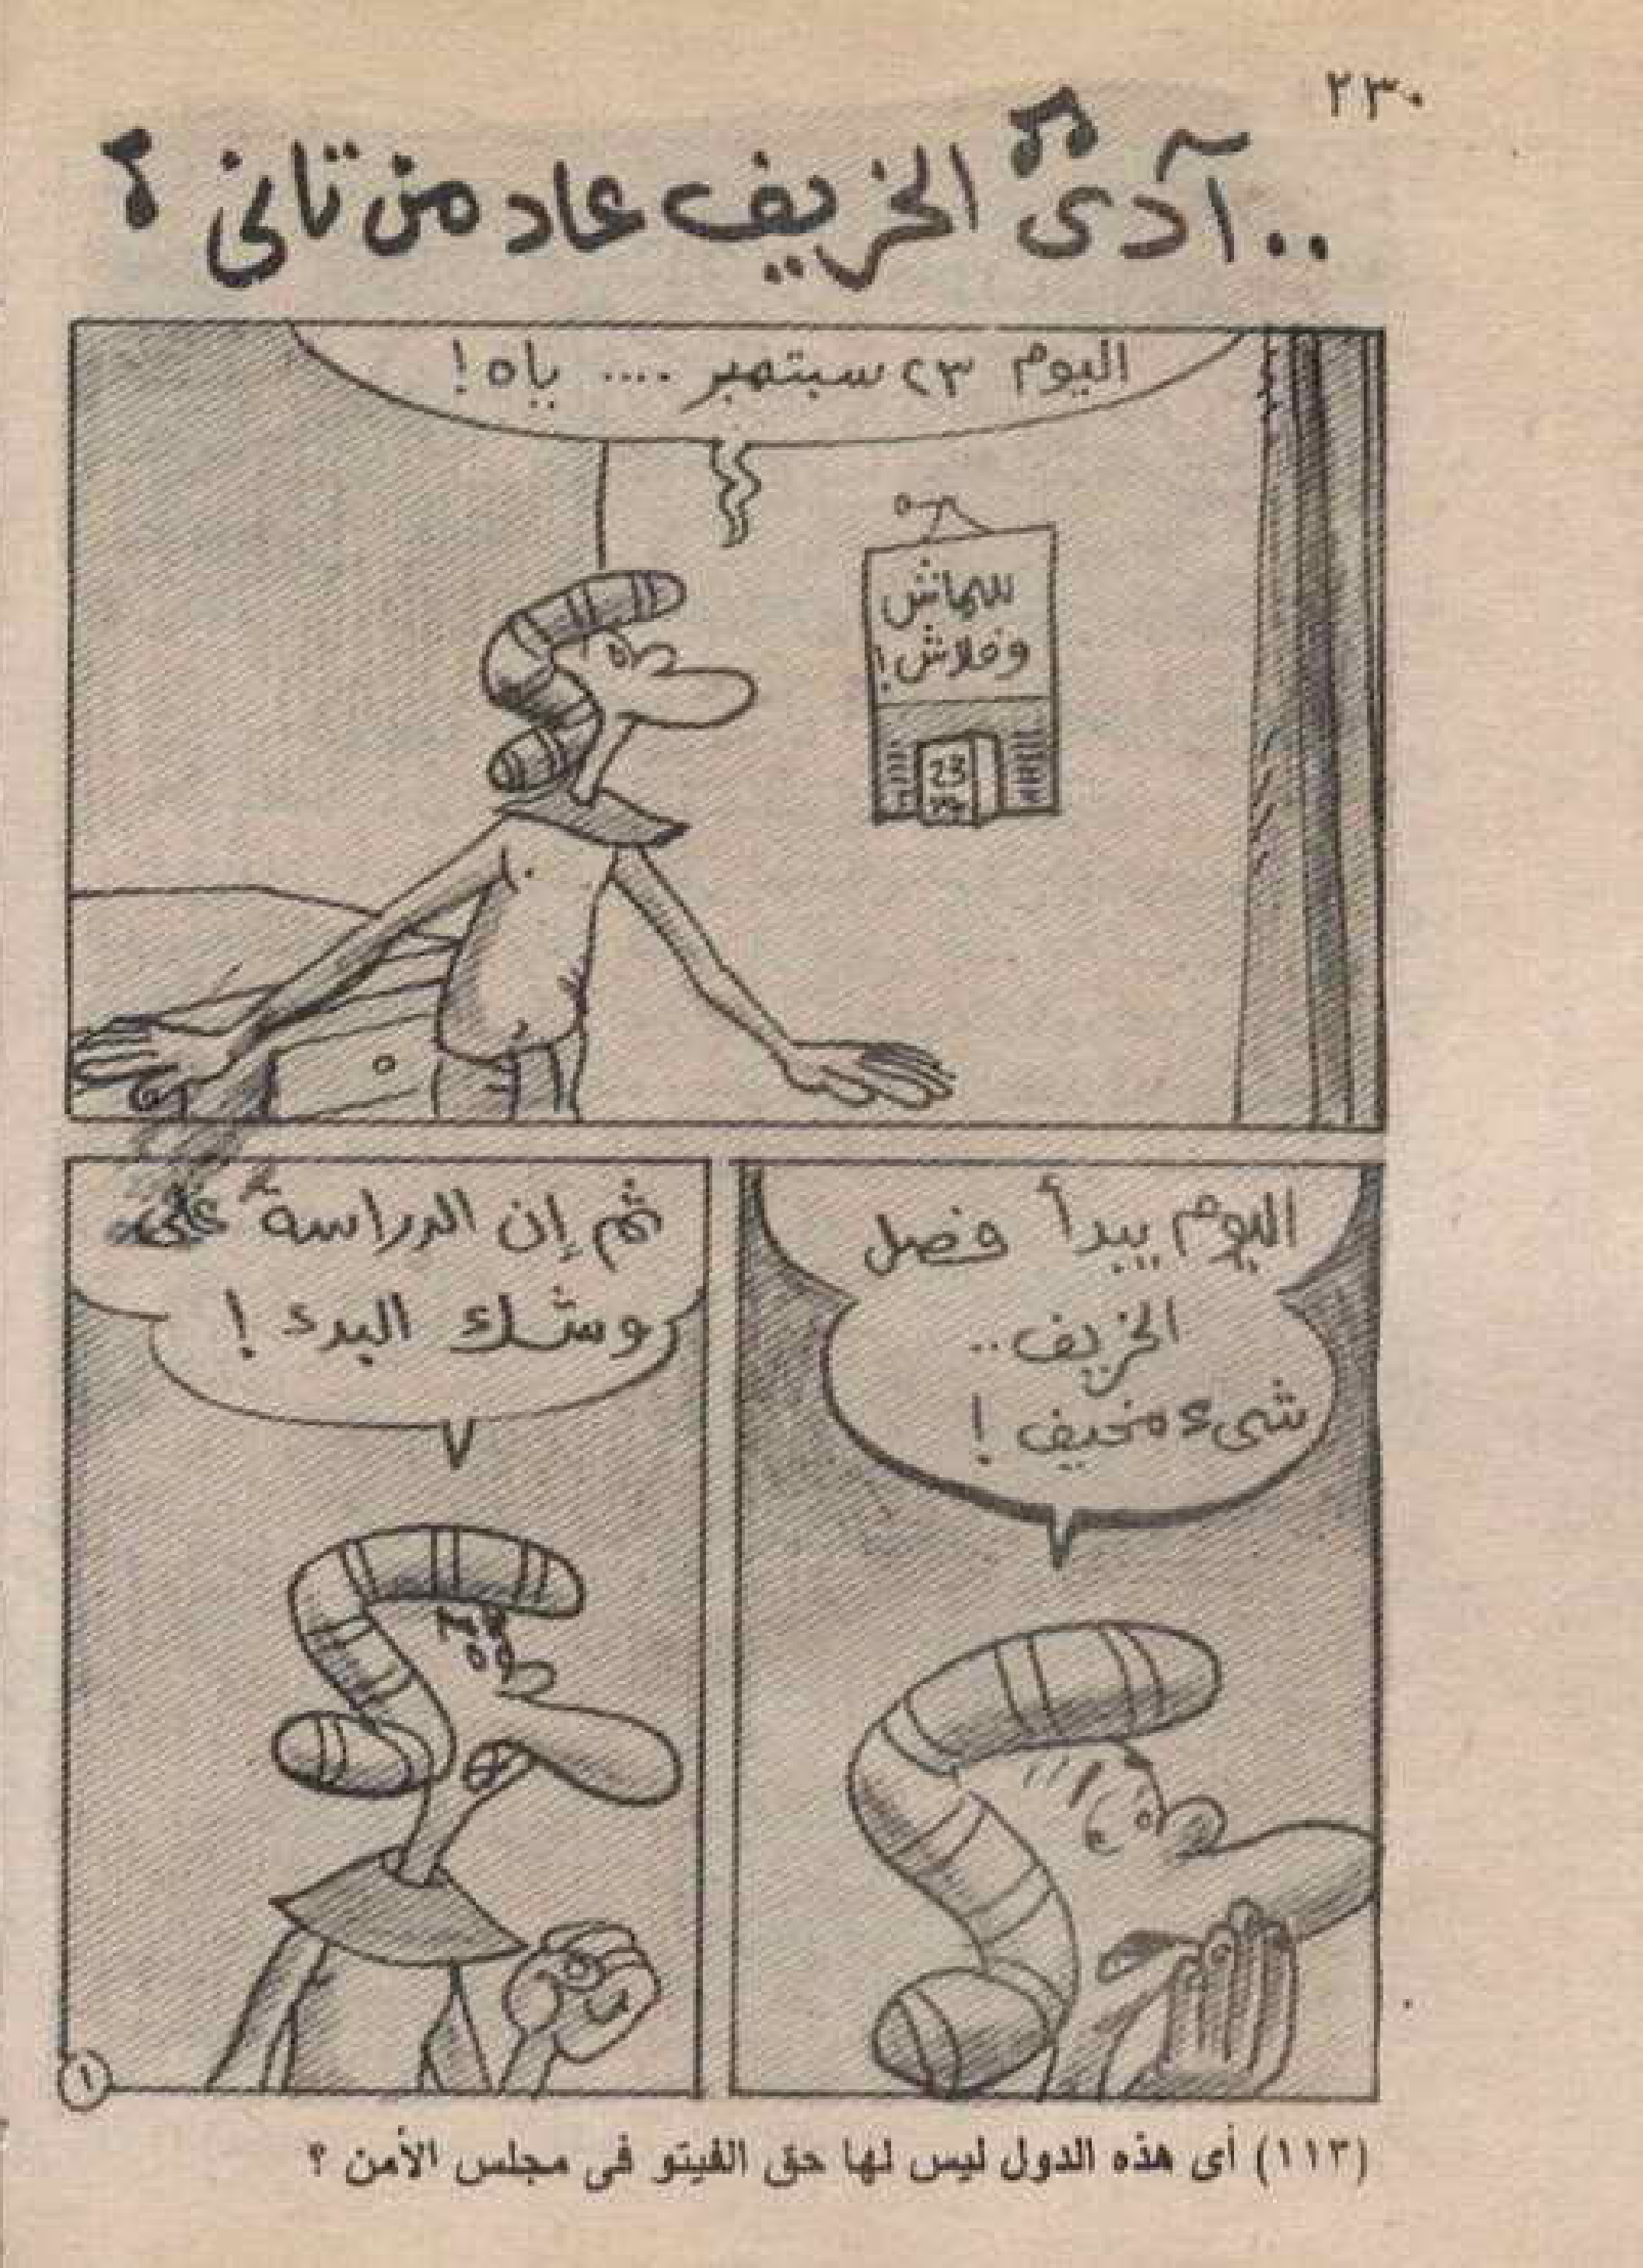 ٢٣٠
..آدى الخريف عاد من تانى ؟
اليوم ٢٣ سبتمبر .... ياه !
فلاش !
23
اليوم يبدأ فصل
الخريف ..
شىء مخيف !
ثم إن الدراسة على
وشك البدء !
١
(١١٣) أى هذه الدول ليس لها حق الفيتو فى مجلس الأمن ؟